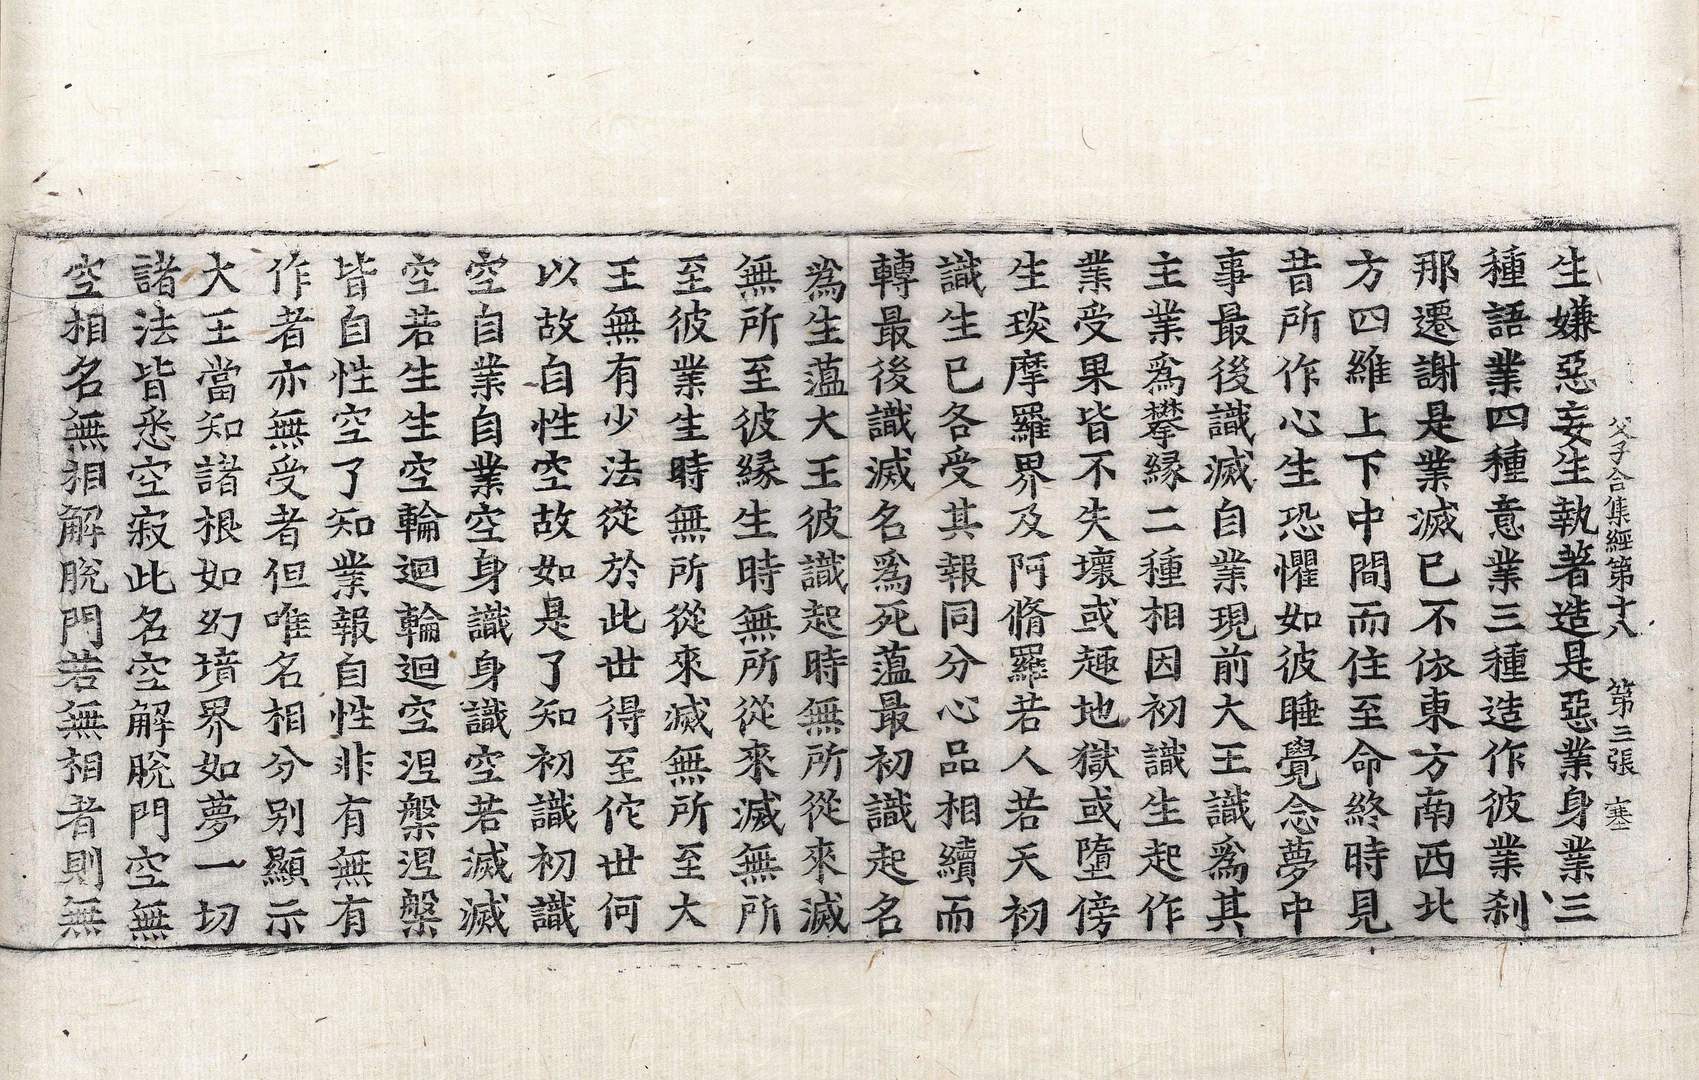 父子合集經第十八 第三張 塞
生嫌惡妄生執著造是惡業身業三
種語業四種意業三種造作彼業刹
那遷謝是業滅已不依東方南西北
方四維上下中間而住至命終時見
昔所作心生恐懼如彼睡覺念夢中
事最後識滅自業現前大王識爲其
主業爲攀緣二種相因初識生起作
業受果皆不失壞或趣地獄或墮傍
生琰摩羅界及阿脩羅若人若天初
識生已各受其報同分心品相續而
轉最後識滅名爲死蘊最初識起名
爲生蘊大王彼識起時無所從來滅
無所至彼緣生時無所從來滅無所
至彼業生時無所從來滅無所至大
王無有少法從於此世得至佗世何
以故自性空故如是了知初識初識
空自業自業空身識身識空若滅滅
空若生生空輪迴輪迴空涅槃涅槃
皆自性空了知業報自性非有無有
作者亦無受者但唯名相分別顯示
大王當知諸根如幻境界如夢一切
諸法皆悉空寂此名空解脫門空無
空相名無相解脫門若無相者則無